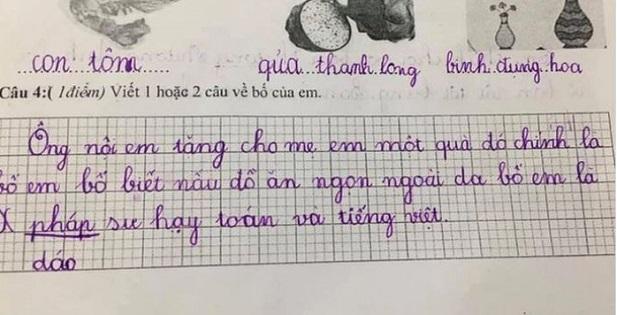 ...con tôm..... qủa..thanh.long bình.đựng.hoa
Câu 4:( 1điểm) Viết 1 hoặc 2 câu về bố của em.
Ông nội em tăng cho mẹ em một quà đó chính là
bố em bố biết nấu đồ ăn ngon ngoài da bố em là
X pháp sư hay toán và tiếng việt.
dáo